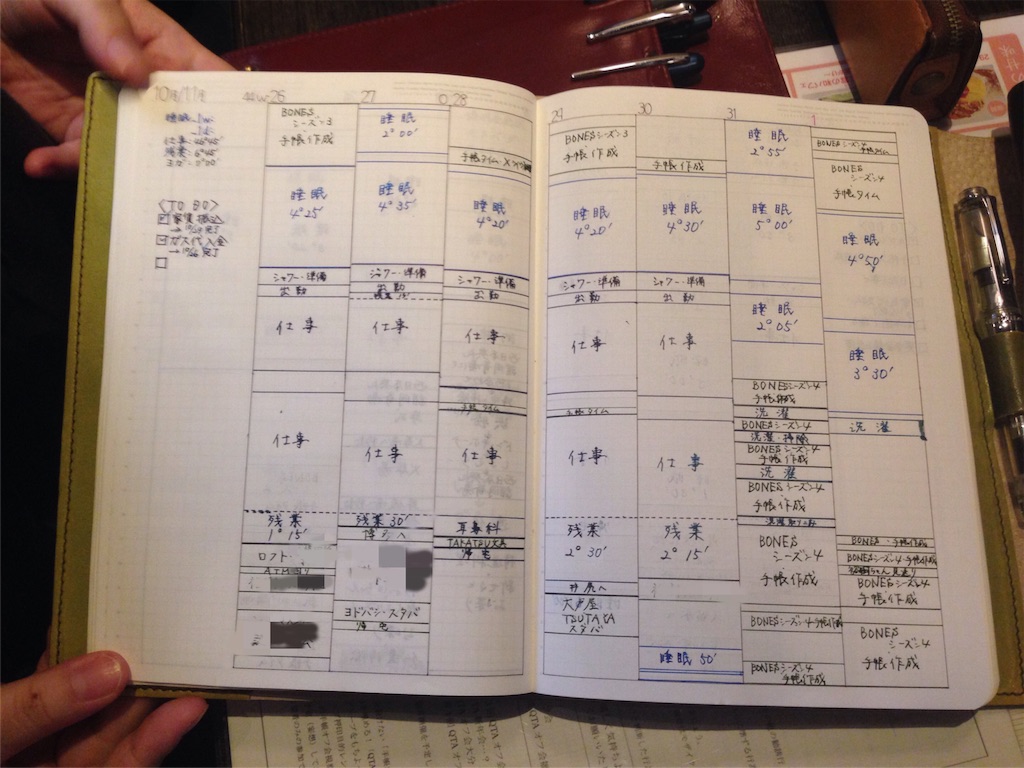 10月/11月
44w
26
27
28
29
30
31
1
睡眠
仕事
残業
<TO DO>
家賃振込
ガス代入金
BONES
シーズン3
手帳作成
睡眠
4°25'
シャワー・準備
出勤
仕事
仕事
残業
1°15'
ロフト
ATM
睡眠
2°00'
睡眠
4°35'
シャワー・準備
出勤
仕事
仕事
残業 30'
ヨドバシ・スタバ
帰宅
手帳タイム
睡眠
4°20'
シャワー・準備
出勤
仕事
手帳タイム
仕事
耳鼻科
帰宅
BONESシーズン3
手帳作成
睡眠
4°20'
シャワー・準備
出勤
仕事
手帳タイム
仕事
残業
2°30'
井尻へ
大戸屋
TSUTAYA
スタバ
手帳作成
睡眠
4°30'
シャワー・準備
出勤
仕事
仕事
残業
2°15'
睡眠 50'
睡眠
2°55'
睡眠
5°00'
睡眠
2°05'
BONESシーズン4
手帳作成
洗濯
BONESシーズン4
洗濯・掃除
BONESシーズン4
手帳作成
洗濯
BONESシーズン4
手帳作成
BONES
シーズン4
手帳作成
BONESシーズン4・手帳作成
BONESシーズン4
手帳作成
BONESシーズン4
手帳タイム
BONES
シーズン4
手帳タイム
睡眠
4°50'
睡眠
3°30'
洗濯
BONES・手帳作成
BONESシーズン4・手帳作成
BONESシーズン4
手帳作成
BONES
シーズン4
手帳作成